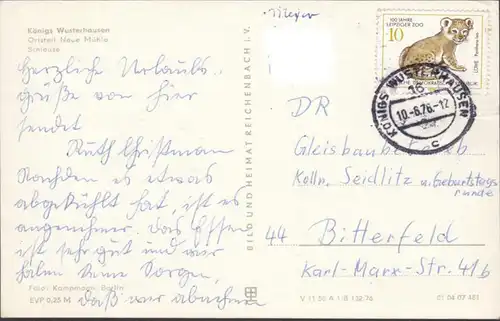 Königs Wusterhausen
Ortsteil Neue Mühle
Schleuse
Meyer
Herzliche Urlaubs-
grüße von hier
sendet
Ruth Christman
Nachdem es etwas
abgekühlt hat, ist es
angenehmer. Das Essen
ist sehr gut und wir
haben keine Sorgen,
daß wir abnehmen
Foto: Kampmann, Berlin
EVP 0,25 M
BILD UND HEIMAT REICHENBACH I. V.
V 11 50 A 1/B 152/76
01 04 07 481
100 JAHRE
LEIPZIGER ZOO
10
LÖWE
KÖNIGS WUSTERHAUSEN
16
10.-8.78.-12
c
DR
Gleisbaubetrieb
Kolln. Seidlitz u. Geburtstags
runde
44 Bitterfeld
Karl-Marx-Str. 41b